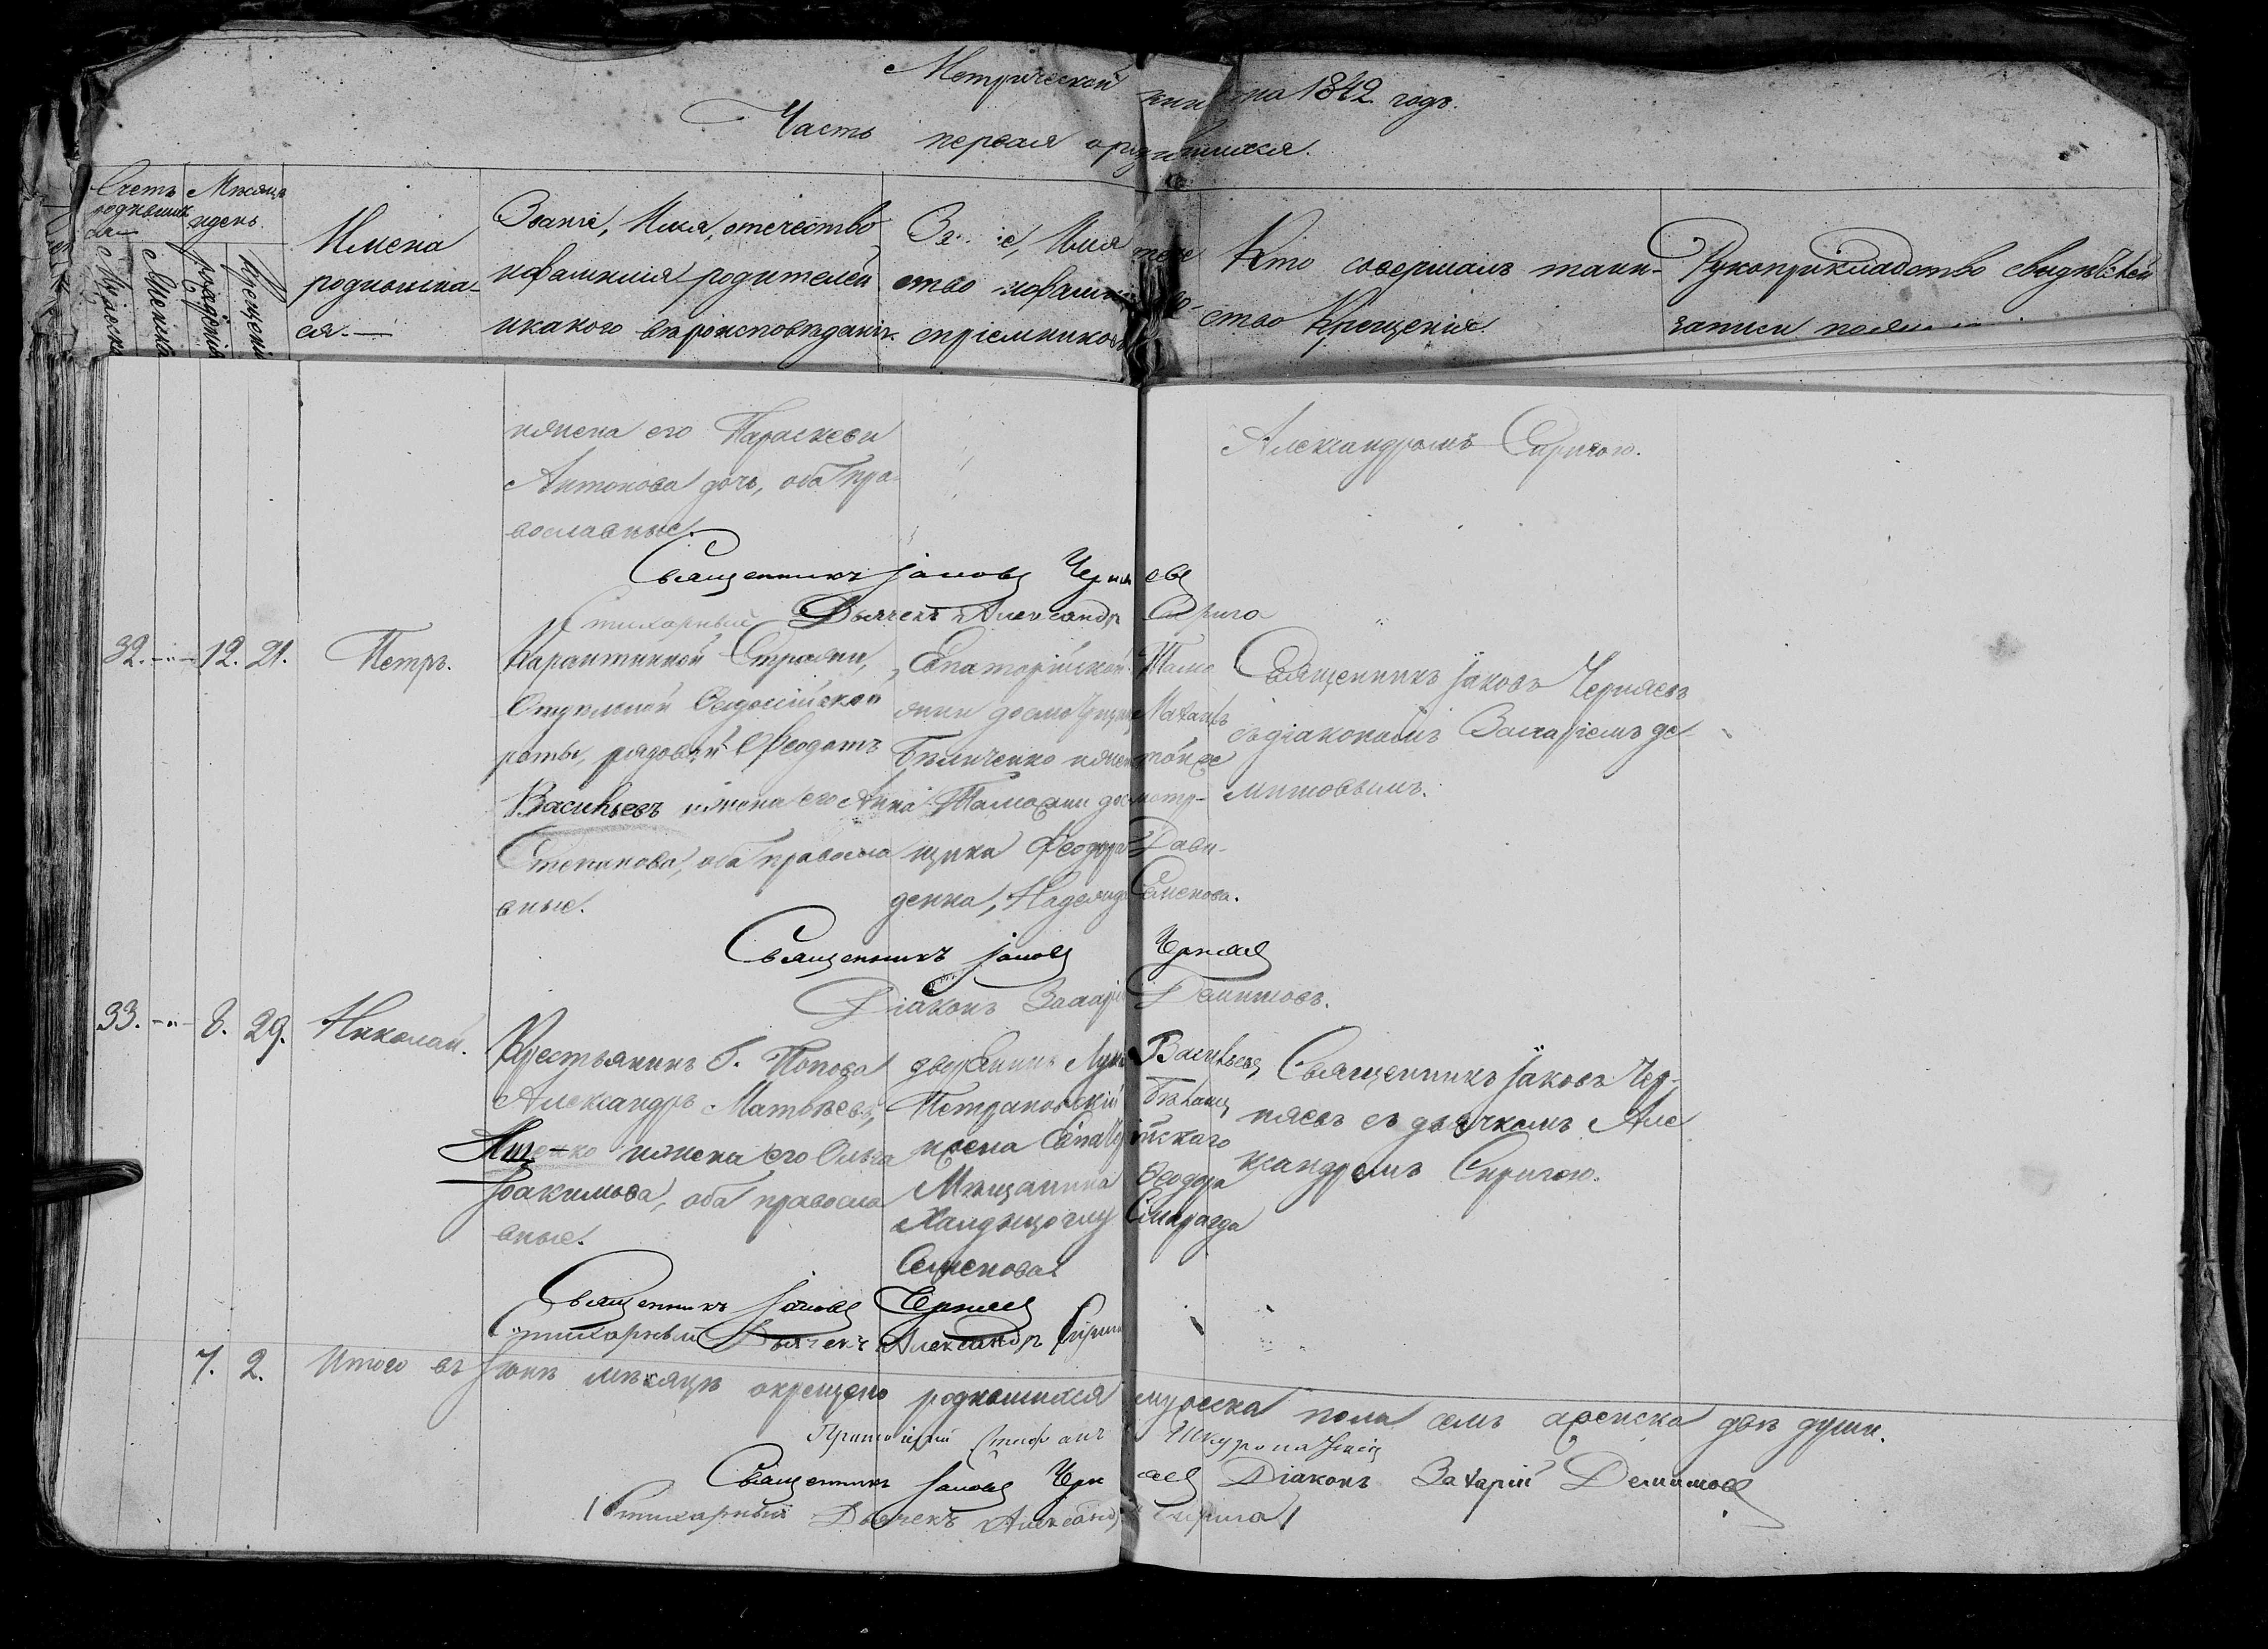 Метрической книги на 1842 годъ.
Часть первая о родившихся.
Счетъ родившихся
Мѣсяцъ и день
Мужеска
Женска
рожденія
Крещенія
Имена
родившихся.
Званіе, Имя, отечество
и фамилія родителей
и какого вѣроисповѣданія.
Званіе, Имя, отече
ство и фамилія во-
спріемниковъ
Кто совершалъ таин-
ство Крещенія.
Рукоприкладство свидѣтелей
записи по желанію
и жена его Параскева
Антонова дочь, оба пра-
вославные.
Александромъ Сиригою.
Священникъ Іаковъ Черняевъ
Стихарный Дьячекъ Александръ Сирига
32. -"- 12. 21. Петръ.
Карантинной Стражи,
Отдѣльной Ѳеодосійской
роты, рядовой Ѳеодотъ
Васильевъ и жена его Анна
Степанова, оба правосла
вные.
Евпаторійской Тамо
жни досмотрщикъ Матвѣй
Бѣличенко и жена той же
Таможни досмотр-
щика Ѳеодора Дави-
денка, Надежда Семенова.
Священникъ Іаковъ Черняевъ
съ діакономъ Захаріемъ Де
митовымъ.
Священникъ Іаковъ Черняевъ
Діаконъ Захарій Демитовъ.
33. -"- 8. 29. Николай.
Крестьянинъ Г. Попова
Александръ Матвѣевъ,
и жена его Ольга
Іоакимова, оба правосла
вные.
дворянинъ Лука Васильевъ
Петрановскій
жена Евпаторійскаго
Мѣщанина Ѳеодора
Смарагда
Семенова.
Священникъ Іаковъ Чер-
няевъ съ дьячкомъ Але
ксандромъ Сиригою.
Священникъ Іаковъ Черняевъ
Стихарный Дьячекъ Александръ Сирига
7. 2. Итого въ Іюнѣ мѣсяцѣ окрещено родившихся мужеска пола семь женска двѣ души.
Протоіерей Стефанъ
Священникъ Іаковъ Черняевъ Діаконъ Захарій Демитовъ
Стихарный Дьячекъ Александръ Сирига